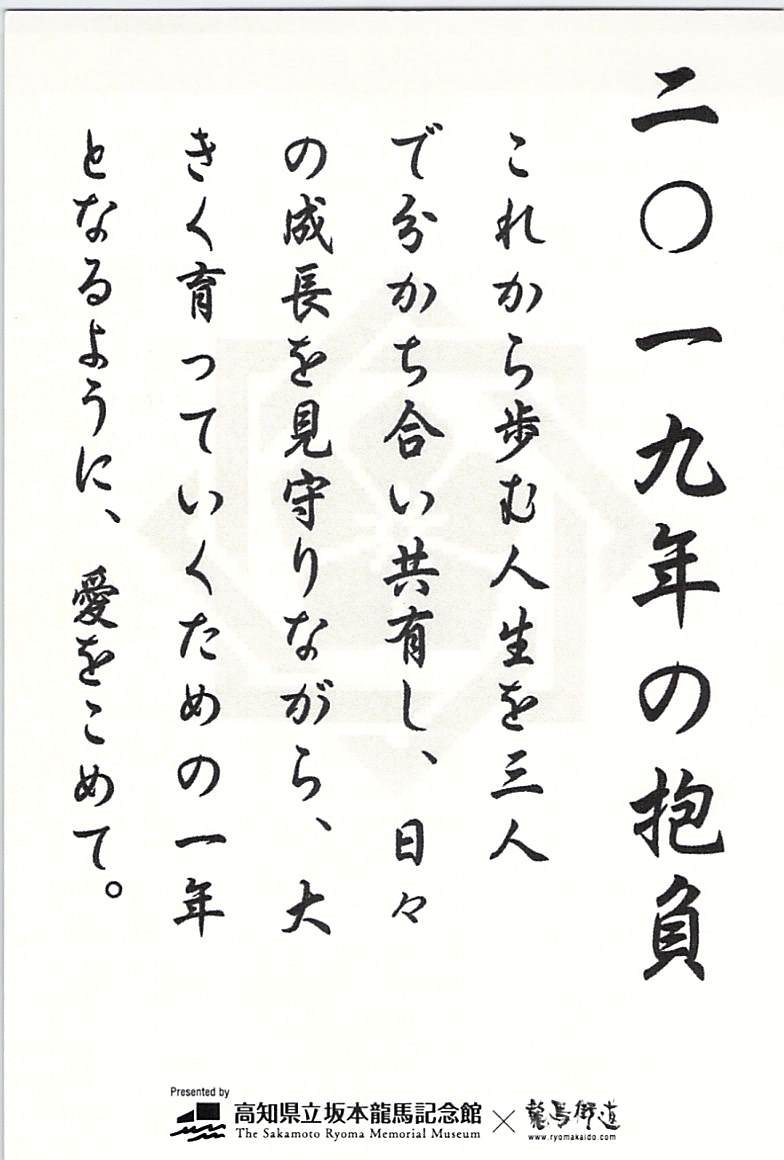 二〇一九年の抱負
これから歩む人生を三人
で分かち合い共有し、日々
の成長を見守りながら、大
きく育っていくための一年
となるように、愛をこめて。
Presented by
高知県立坂本龍馬記念館
The Sakamoto Ryoma Memorial Museum
×
龍馬街道
www.ryomakaido.com